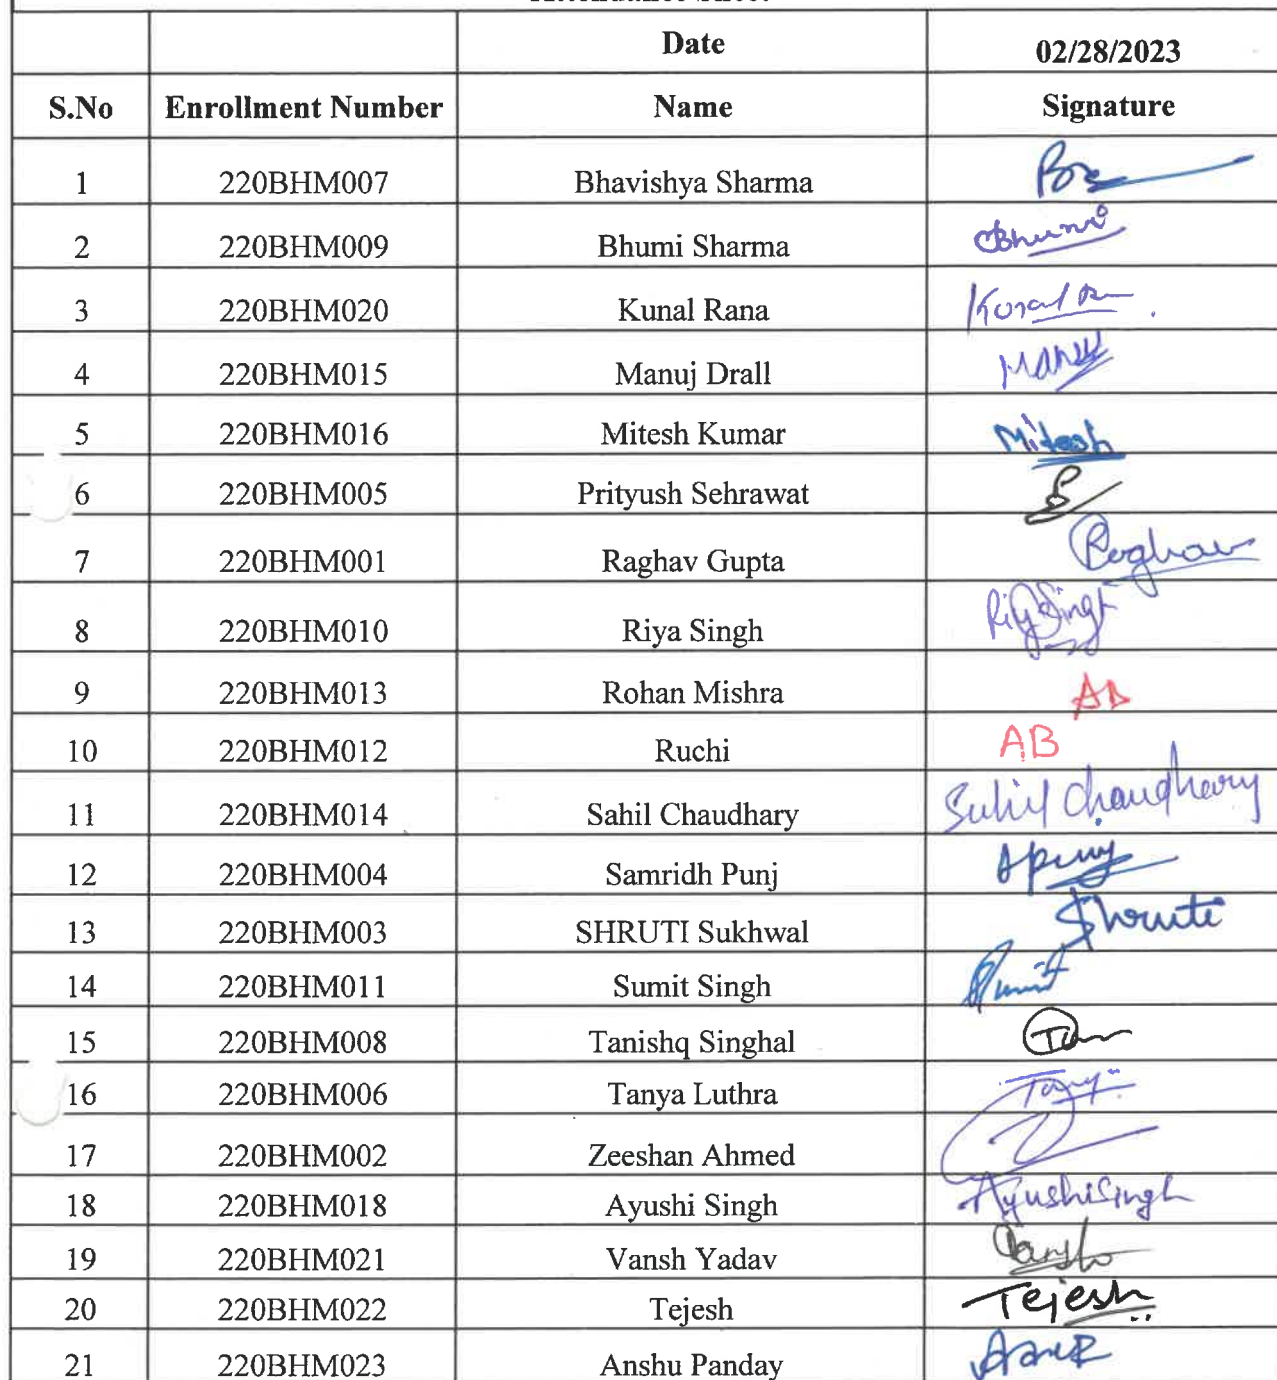 Attendance Sheet
Date 02/28/2023
S.No Enrollment Number Name Signature
1 220BHM007 Bhavishya Sharma
2 220BHM009 Bhumi Sharma Bhumi
3 220BHM020 Kunal Rana Kunal
4 220BHM015 Manuj Drall Manuj
5 220BHM016 Mitesh Kumar Mitesh
6 220BHM005 Prityush Sehrawat
7 220BHM001 Raghav Gupta Raghav
8 220BHM010 Riya Singh Riya Singh
9 220BHM013 Rohan Mishra AB
10 220BHM012 Ruchi AB
11 220BHM014 Sahil Chaudhary Sahil Chaudhary
12 220BHM004 Samridh Punj
13 220BHM003 SHRUTI Sukhwal Shruti
14 220BHM011 Sumit Singh Sumit
15 220BHM008 Tanishq Singhal
16 220BHM006 Tanya Luthra
17 220BHM002 Zeeshan Ahmed
18 220BHM018 Ayushi Singh Ayushi Singh
19 220BHM021 Vansh Yadav Vansh
20 220BHM022 Tejesh Tejesh
21 220BHM023 Anshu Panday